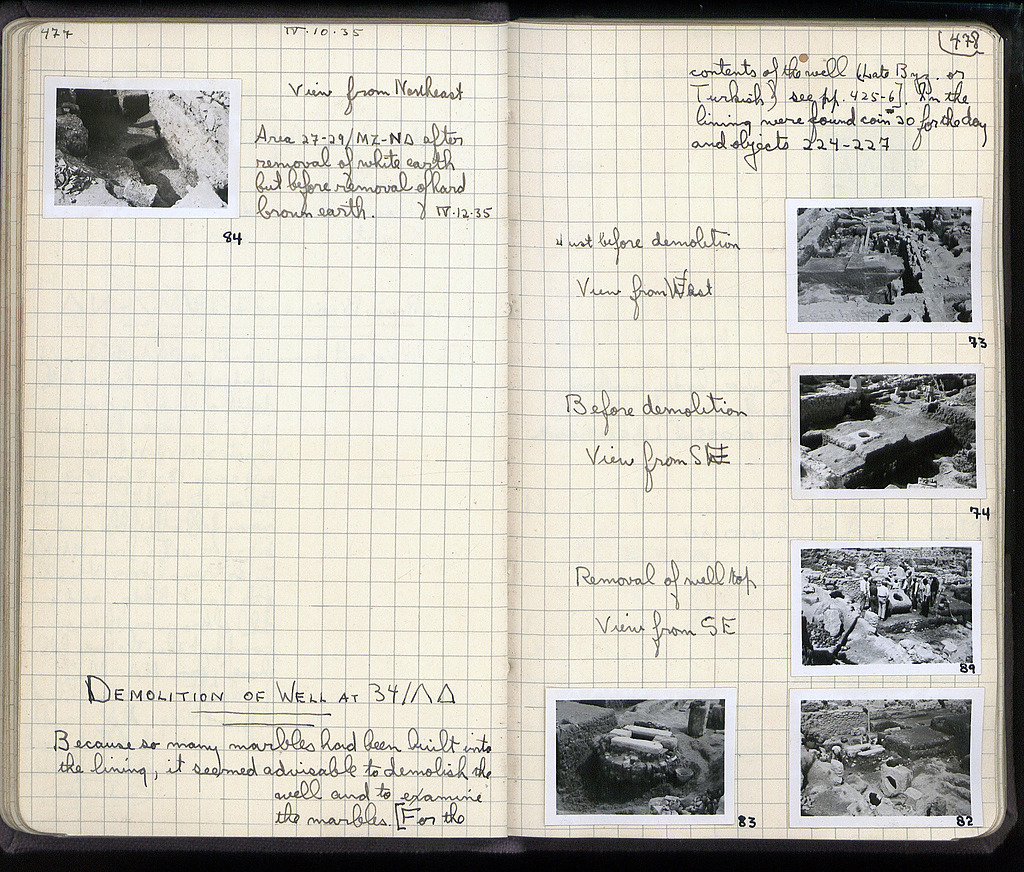 477
IV·10·35
View from Northeast
Area 27-29/ΜΖ-ΝΔ after
removal of white earth
but before removal of hard
brown earth. IV·12·35
84
DEMOLITION OF WELL AT 34/ΛΔ
Because so many marbles had been built into
the lining, it seemed advisable to demolish the
well and to examine
the marbles. [For the
478
contents of the well (Late Byz. or
Turkish) see pp. 425-6]. In the
lining were found coin 30 for the day
and objects 224-227
Just before demolition
View from West
73
Before demolition
View from SE
74
Removal of well top
View from SE
89
83
82